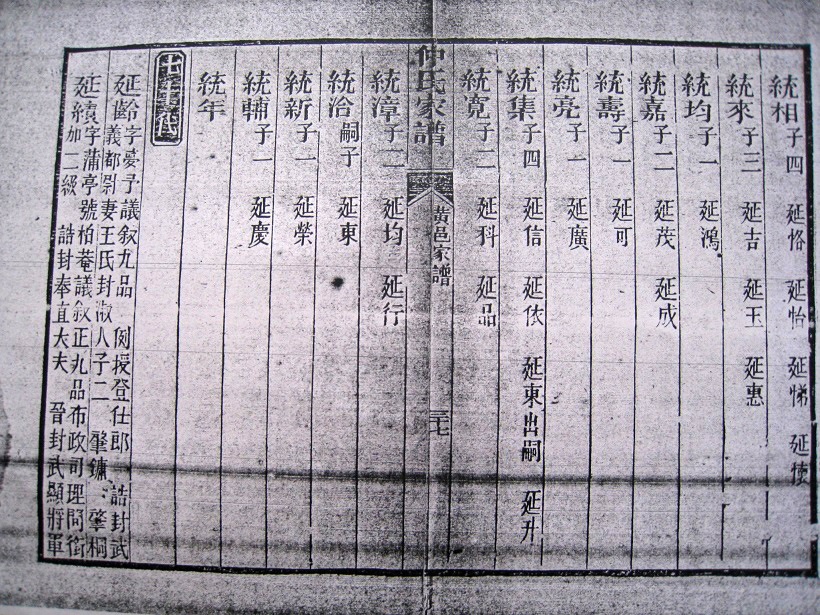 統相子四 延恪 延怡 延悌 延使
統來子三 延吉 延玉 延惠
統均子一 延鴻
統嘉子二 延茂 延成
統壽子一 延可
統亮子一 延廣
統集子四 延信 延依 延東出嗣 延升
統寬子二 延科 延品
仲氏家譜 黃邑家譜 三七
統漳子二 延均 延行
統治嗣子 延東
統新子一 延榮
統輔子一 延慶
統年
延齡字夢予議叙九品 例授登仕郎 誥封武
義都尉妻王氏封淑人子二 肇鏞 肇桐
延績字蒲亭號柏菴議叙正九品布政司理問銜
加二級 誥封奉直大夫 晉封武顯將軍